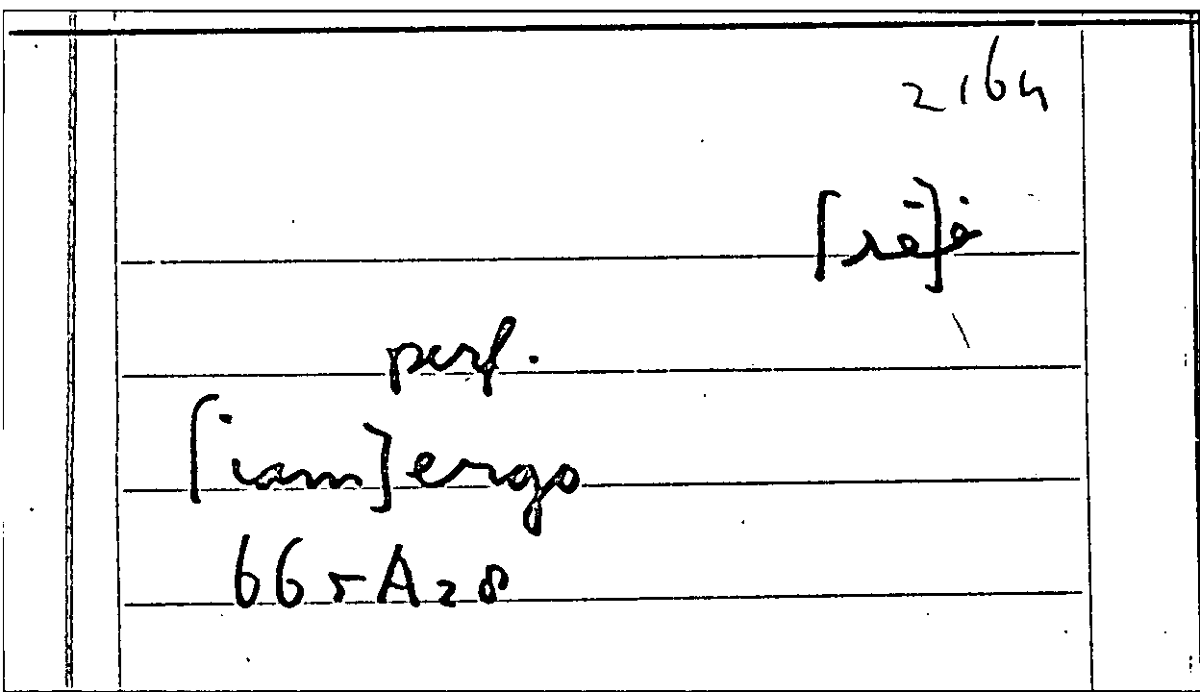 2164
[sē]ė
perf.
[iam] ergo
665A28